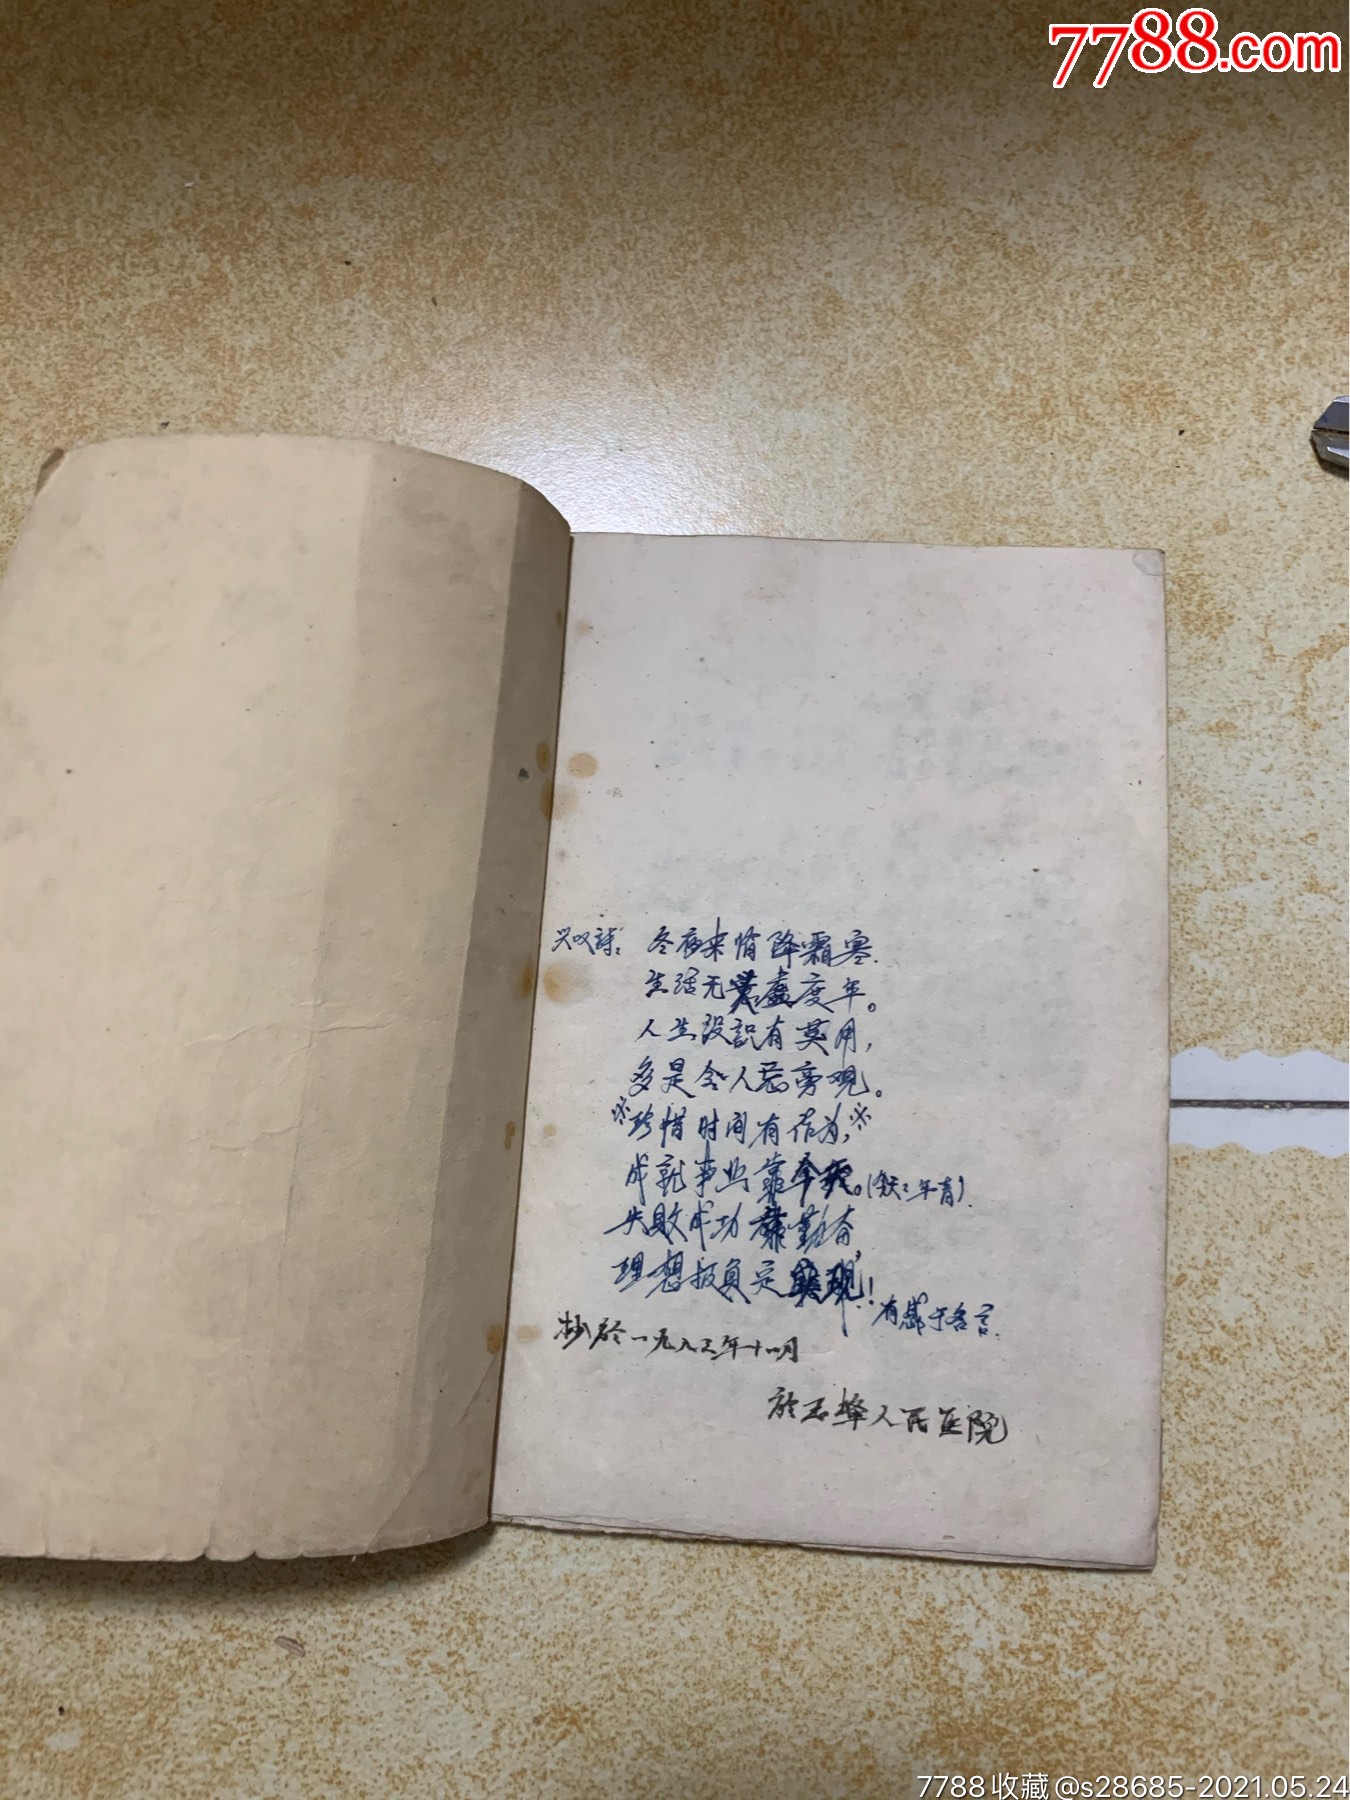 7788.com
兴叹诗：冬夜来悄降霜寒．
生活无虚度年。
人生没识有莫用，
多是令人忌旁观。
※珍惜时间有作为，※
成就事业靠年。（年青）．
失败成功靠勤奋
理想报负定实现！
有感于名言．
抄于一九八三年十一月
於人民医院
7788收藏@s28685-2021.05.24